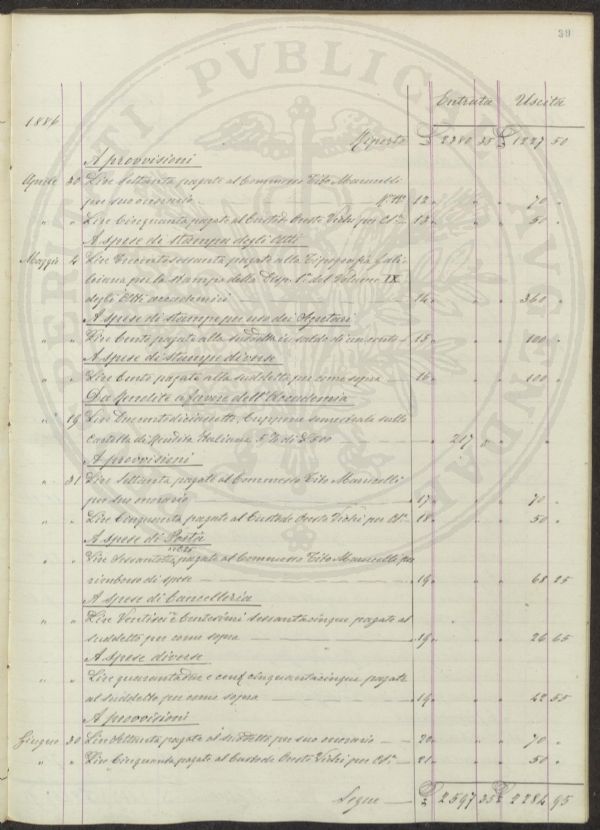 39
Entrata Uscita
1886
Riporto £ 2380 35 £ 1227 50
A provvisioni
Aprile 30 Lire Settanta pagate al Commesso Tito Marucelli
per suo onorario N° 12 " " " 70 "
" " Lire Cinquanta pagate al Custode Oreste Vichi per Id. 13 " " " 50 "
A spese di stampa degli Atti
Maggio 4 Lire Trecentosessanta pagate alla Tipografia Gali-
leiana per la stampa della Disp. 1ª del Volume IX
degli Atti accademici 14 " " " 360 "
A spese di stampe per uso dei
" " Lire Cento pagate alla suddetta in saldo di un conto 15 " " " 100 "
A spese di stampe diverse
" " Lire Cento pagate alla suddetta per come sopra 16 " " " 100 "
Da Rendite a favore dell'Accademia
" 19 Lire Duecentodiciassette. Cuppone semestrale sulla
Cartella di Rendita Italiana 5% di £ 500 " 217 " " "
A provvisioni
" 31 Lire Settanta pagate al Commesso Tito Marucelli
per suo onorario 17 " " " 70 "
" " Lire Cinquanta pagate al Custode Oreste Vichi per Id. 18 " " " 50 "
A spese di Posta
" " Lire Sessantotto pagate al Commesso Tito Marucelli per
rimborso di spese 19 " " " 68 25
A spese di Cancelleria
" " Lire Ventisei e Centesimi sessantacinque pagate al
suddetto per come sopra 19 " " " 26 65
A spese diverse
" " Lire quarantadue e cent. cinquantacinque pagate
al suddetto per come sopra 19 " " " 42 55
A provvisioni
Giugno 30 Lire Settanta pagate al suddetto per suo onorario 20 " " " 70 "
" " Lire Cinquanta pagate al Custode Oreste Vichi per Id. 21 " " " 50 "
Segue £ 2597 35 £ 2284 95
PUBLICAE